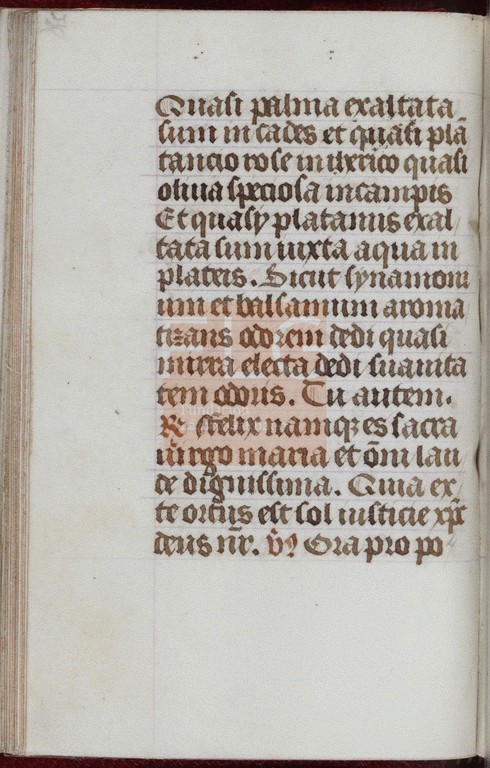 Quasi palma exaltata
sum in cades et quasi plā
tancio rose in iherico quasi
oliua speciosa in campis
Et quasy platanus exal
tata sum iuxta aquam in
plateis. Sicut synamom
um et balsamum aroma
tizans odorem dedi quasi
mirra electa dedi suauita
tem odoris. Tu autem.
R̃ Felix namqꝫ es sacra
uirgo maria et oм̃i lau
de dignissima. Quia ex
te ortus est sol iusticie xp̄s
deus nr̄. v̄ꝯ Ora pro po